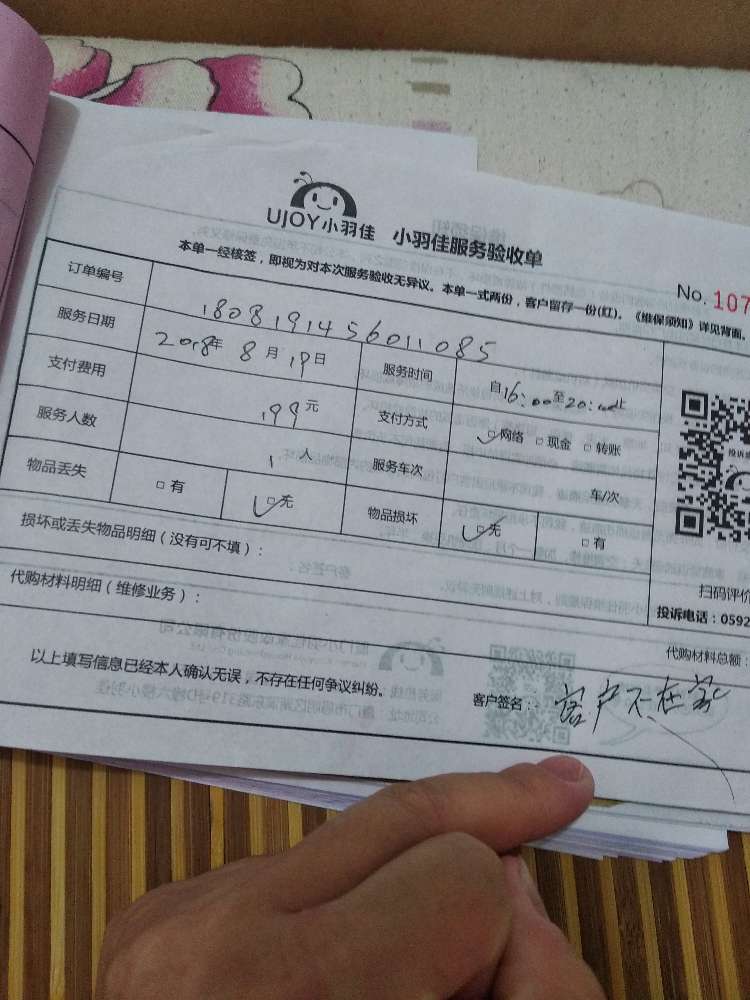 UJOY小羽佳 小羽佳服务验收单
No. 107
本单一经核签，即视为对本次服务验收无异议。本单一式两份，客户留存一份(红)。《维保须知》详见背面。
订单编号 1808191456011085
服务日期 2018年 8月 19日 服务时间 自16:00至20:00止
支付费用 199元 支付方式 □网络 □现金 □转账
服务人数 1人 服务车次 车/次
物品丢失 □有 □无 物品损坏 □无 □有
损坏或丢失物品明细（没有可不填）：
扫码评价
代购材料明细（维修业务）：
投诉电话：0592
代购材料总额：
以上填写信息已经本人确认无误，不存在任何争议纠纷。 客户签名： 客户不在家